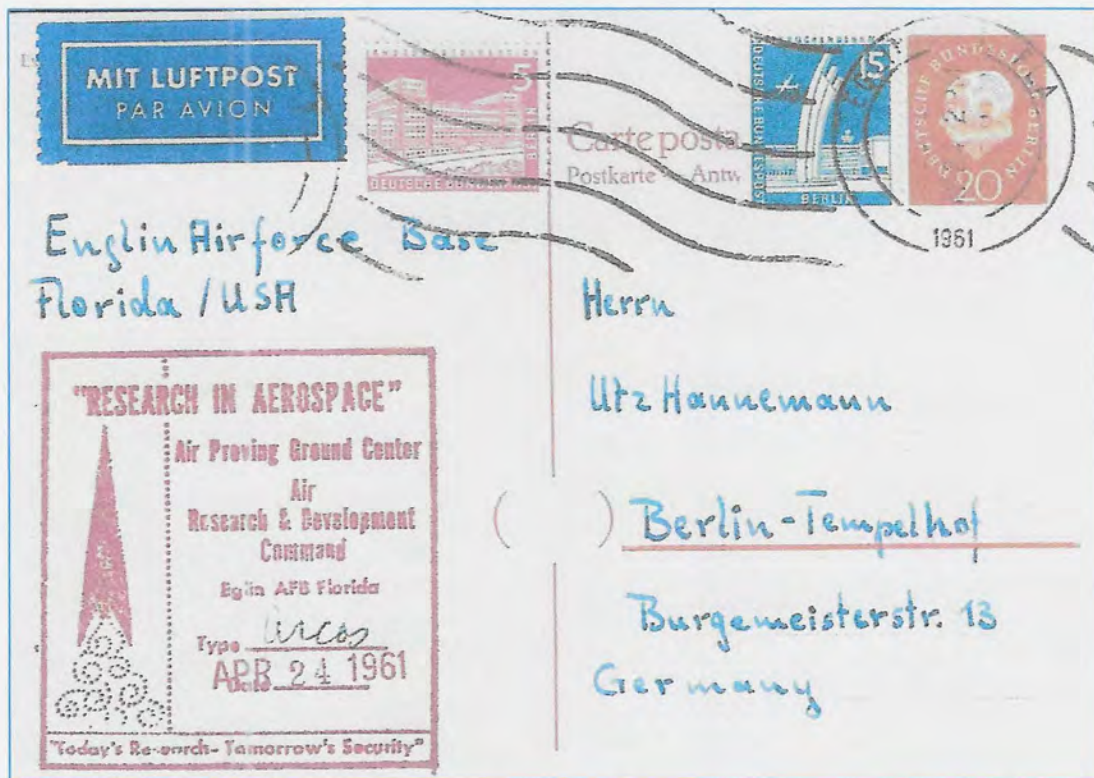 MIT LUFTPOST
PAR AVION
5
BERLIN
15
DEUTSCHE BUNDESPOST
BERLIN
DEUTSCHE BUNDESPOST BERLIN
20
Carte posta
Postkarte — Antw.
1961
Englin Airforce Base
Florida / USA
Herrn
Utz Hannemann
( ) Berlin-Tempelhof
Burgemeisterstr. 13
Germany
"RESEARCH IN AEROSPACE"
Air Proving Ground Center
Air
Research & Development
Command
Eglin AFB Florida
Type Arcas
APR 24 1961
Date
"Today's Research - Tomorrow's Security"